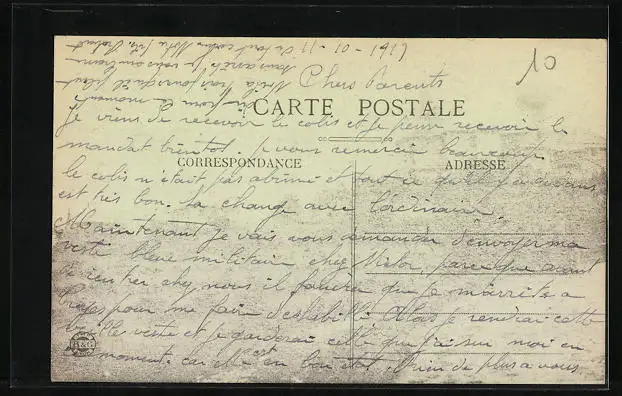 11 - 10 - 1919
10
Chers Parents
CARTE POSTALE
Je viens de recevoir le colis et je peux recevoir le
mandat bientot. je vous remercie beaucoup
CORRESPONDANCE
ADRESSE
le colis n'était pas abimé et tout ce qu'il y a dedans
est très bon. Sa change avec l'ordinaire.
Maintenant je vais vous demander d'envoyer ma
veste bleue militaire chez Victor parce que avant
de rentrer chez nous il faudra que je m'arrête a
pour me faire déshabillé. Alors je rendrai cette
veste et je garderai celle que j'ai sur moi en
moment. car elle est en bon état. Rien de plus a vous
voila trois jours qu'il pleut
pour le moment
B&G